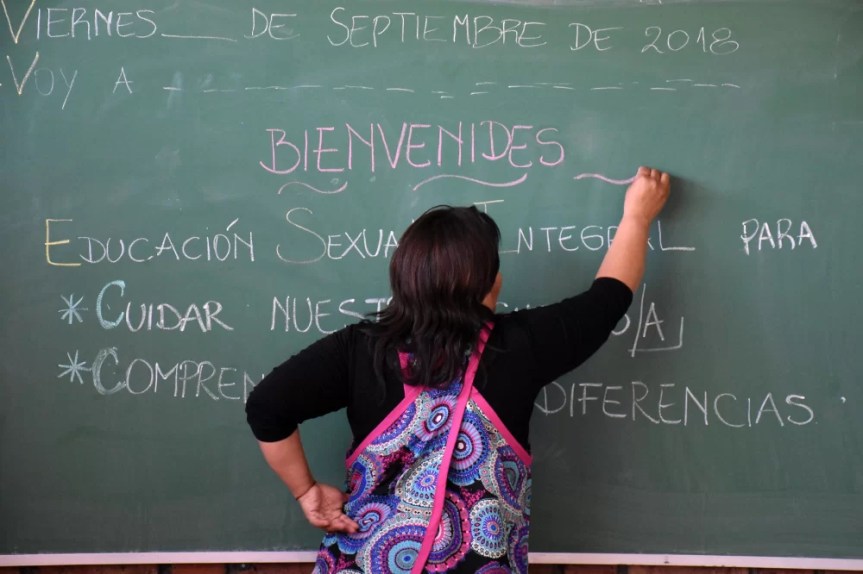 VIERNES___ DE SEPTIEMBRE DE 2018
VOY A _ _ _ _ _ _ _ _ _ _ _ _
BIENVENIDES
EDUCACIÓN SEXUAL INTEGRAL PARA
* CUIDAR
* DIFERENCIAS.